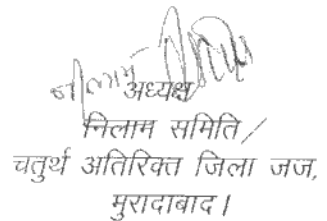 अध्यक्ष
निलाम समिति
चतुर्थ अतिरिक्त जिला जज,
मुरादाबाद।